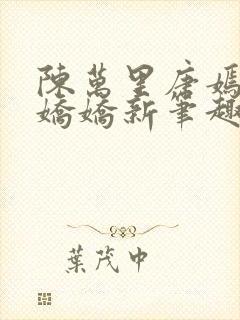 陳萬里唐嫣
嬌嬌新筆趣
葉茂中